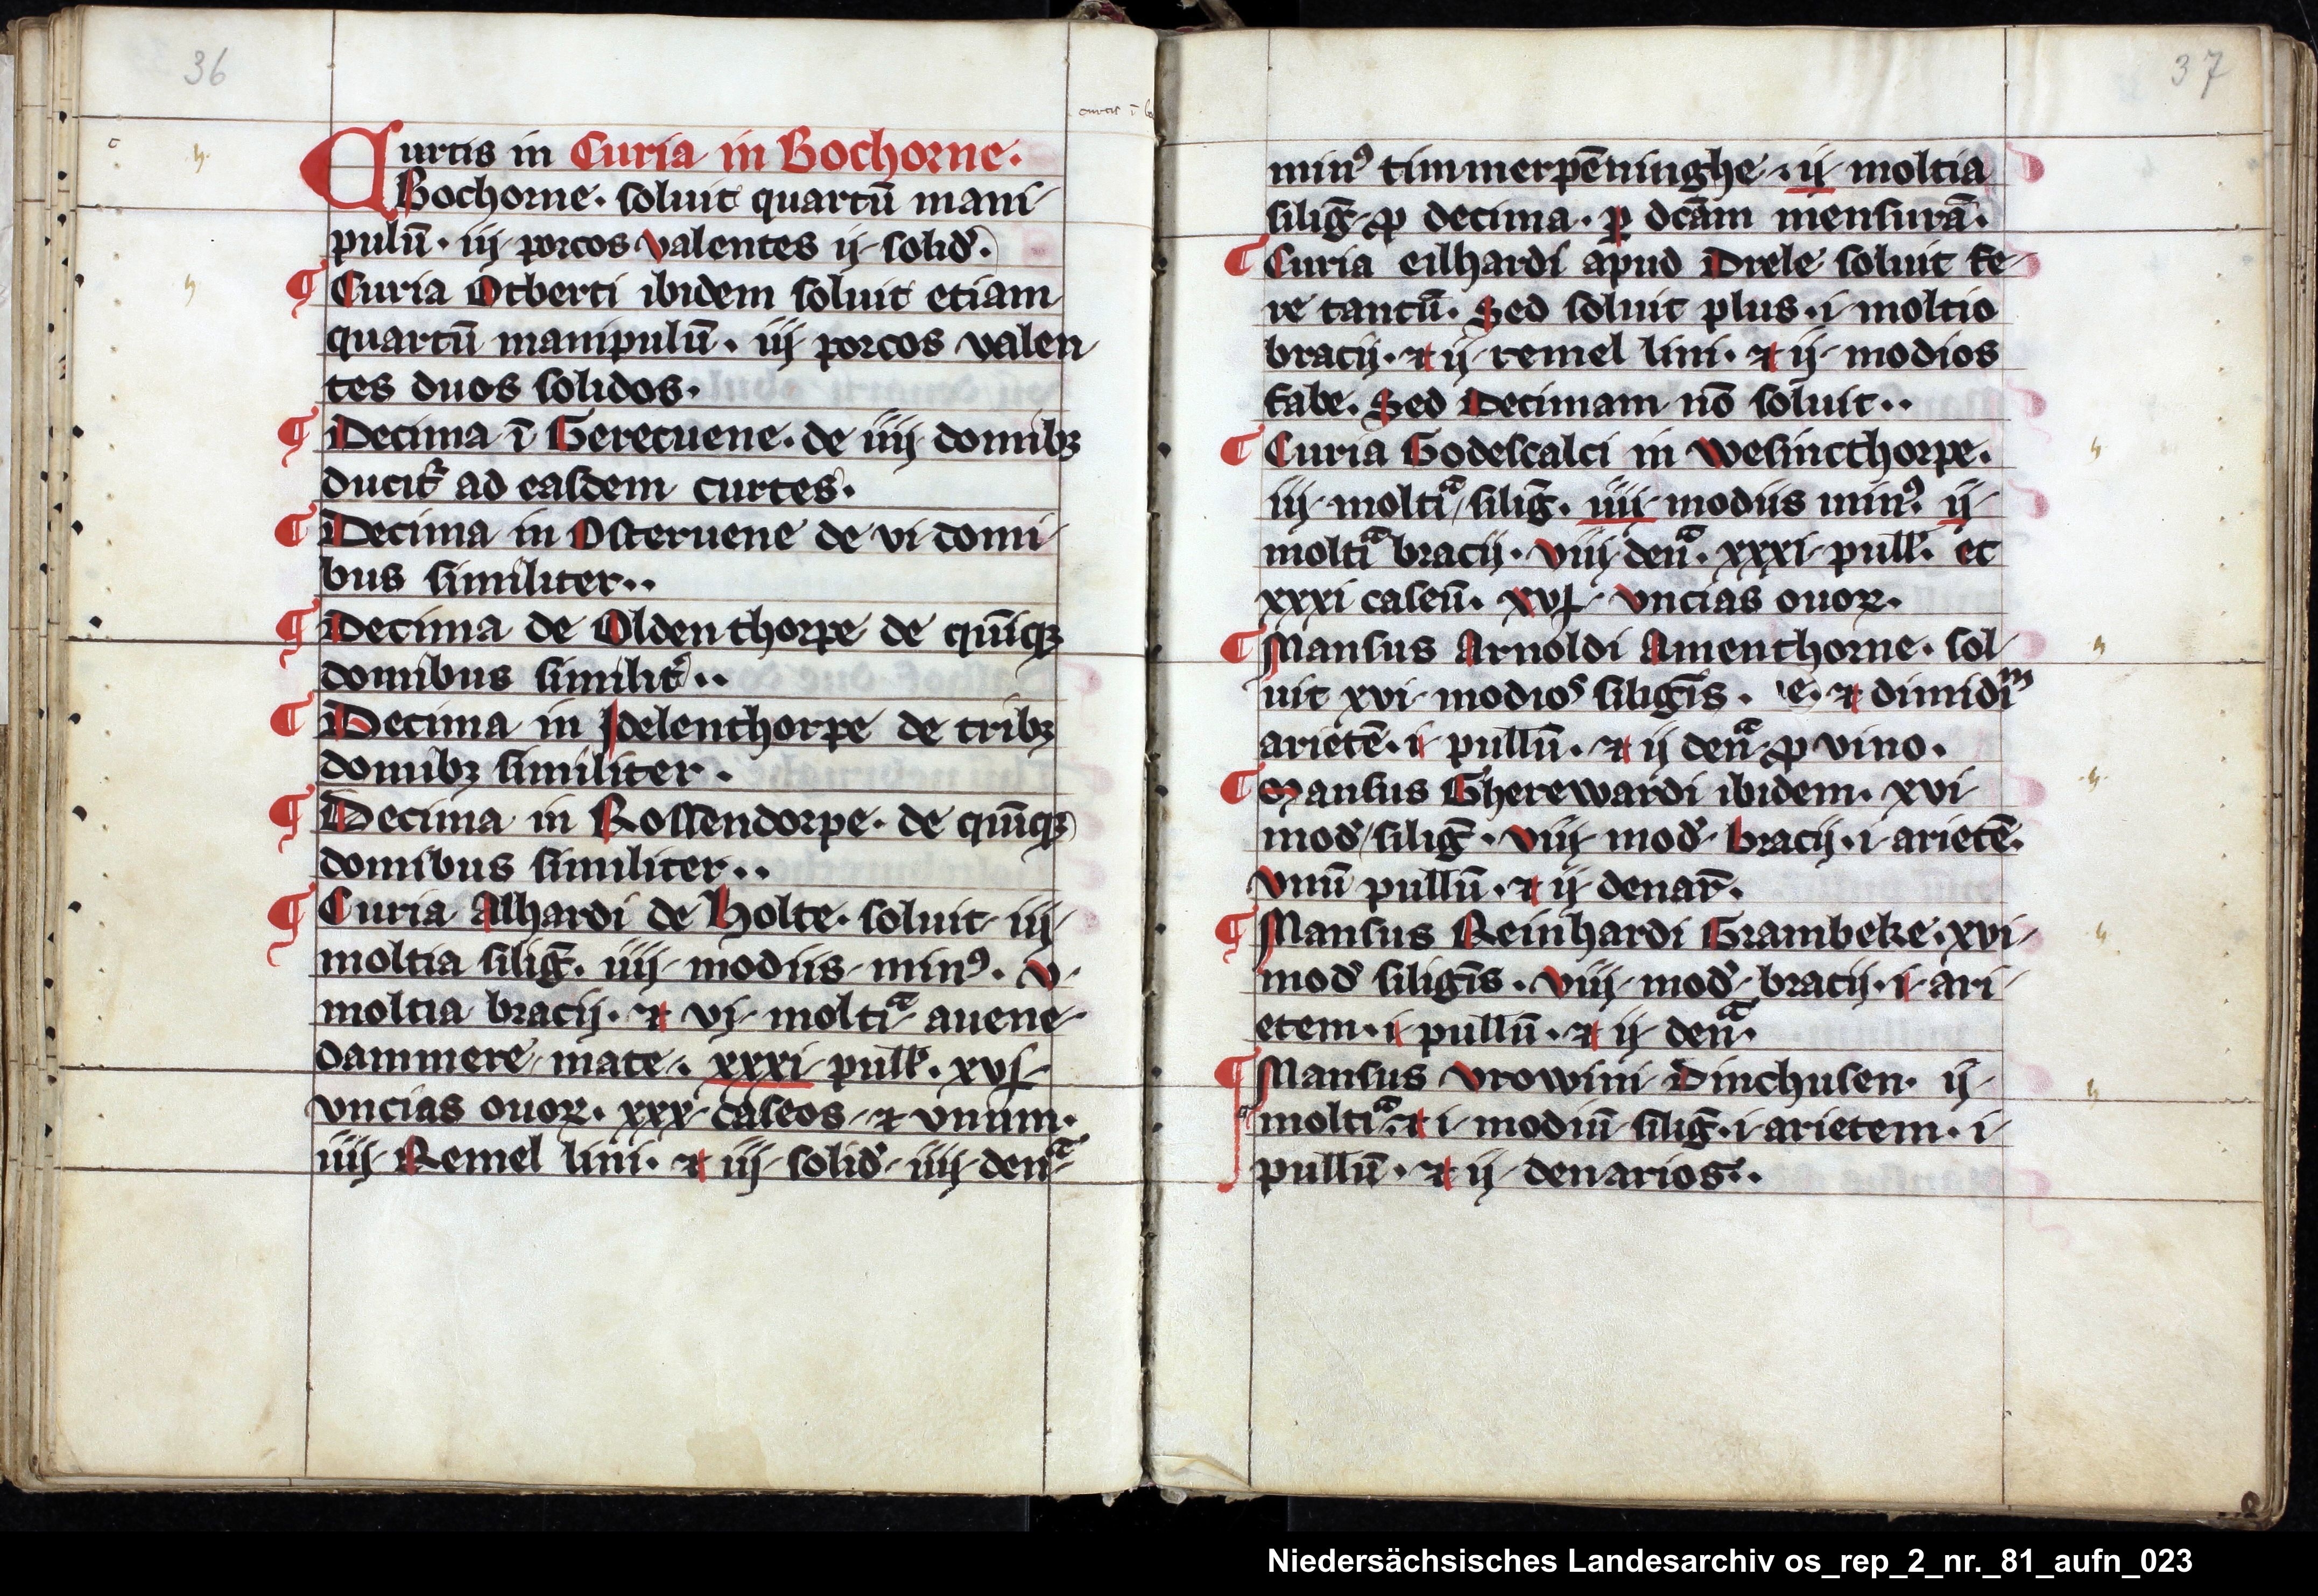 36
curtis ī bo
Curtis in Curia in Bochorne.
Bochorne. soluit quartū mani-
pulū. iij porcos valentes ij solid᷑.
¶ Curia Otberti ibidem soluit etiam
quartū manipulū. iij porcos valen
tes duos solidos.
¶ Decima ī Gerecuene. de iiij domibꝫ
ducit᷑ ad easdem curtes.
¶ Decima in Osteruene de vi domi-
bus similiter..
¶ Decima de Oldenthorpe de quīqꝫ
domibus similit᷑..
¶ Decima in Idelenthorpe de tribꝫ
domibꝫ similiter.
¶ Decima in Rossendorpe. de quīqꝫ
domibus similiter..
¶ Curia Alhardi de Holte. soluit iij
moltia silig̅. iiij modiis minꝰ. v.
moltia bracij. ⁊ vj moltiᵃ auene
dammere mate. xxxi pull̅. xvj
vncias ouoꝝ. xxx caseos ⁊ vnum.
iiij Remel lini. ⁊ iij solid᷑ iiij denᵃ
37
minꝰ timmerpēninghe. ij moltia
silig̅ ꝓ decima. ꝑ dc̄am mensurā.
¶ Curia eilhardi apud Drele soluit fe-
re tantū. Sed soluit plus. i moltio
bracij. ⁊ ij remel lini. ⁊ ij modios
fabe. Sed Decimam nō soluit..
¶ Curia Godescalci in Wesincthorpe.
iij moltiᵃ silig̅. iiij modiis minꝰ. ij
moltiᵃ bracij. viij denᵃ. xxxi pull̅. et
xxxi caseū. xvj vncias ouoꝝ.
¶ Mansus Arnoldi Amenthorne. sol-
uit xvi modioˢ siligīs. ⁊ dimidiᵐ
arietē. i pullū. ⁊ ij denᵃ ꝓ vino.
¶ Mansus Gherewardi ibidem. xvi
mod᷑ silig̅. viij mod᷑ bracij. i arietē.
vnū pullū. ⁊ ij denar̄.
¶ Mansus Reinhardi Grambeke. xvi
mod᷑ siligīs. viij mod᷑ bracij. i ari-
etem. i pullū. ⁊ ij denᵃ.
¶ Mansus Vrowini Dinchusen. ij
moltiᵃ. ⁊ i modiū silig̅. i arietem. i
pullū. ⁊ ij denarios..
Niedersächsisches Landesarchiv os_rep_2_nr._81_aufn_023